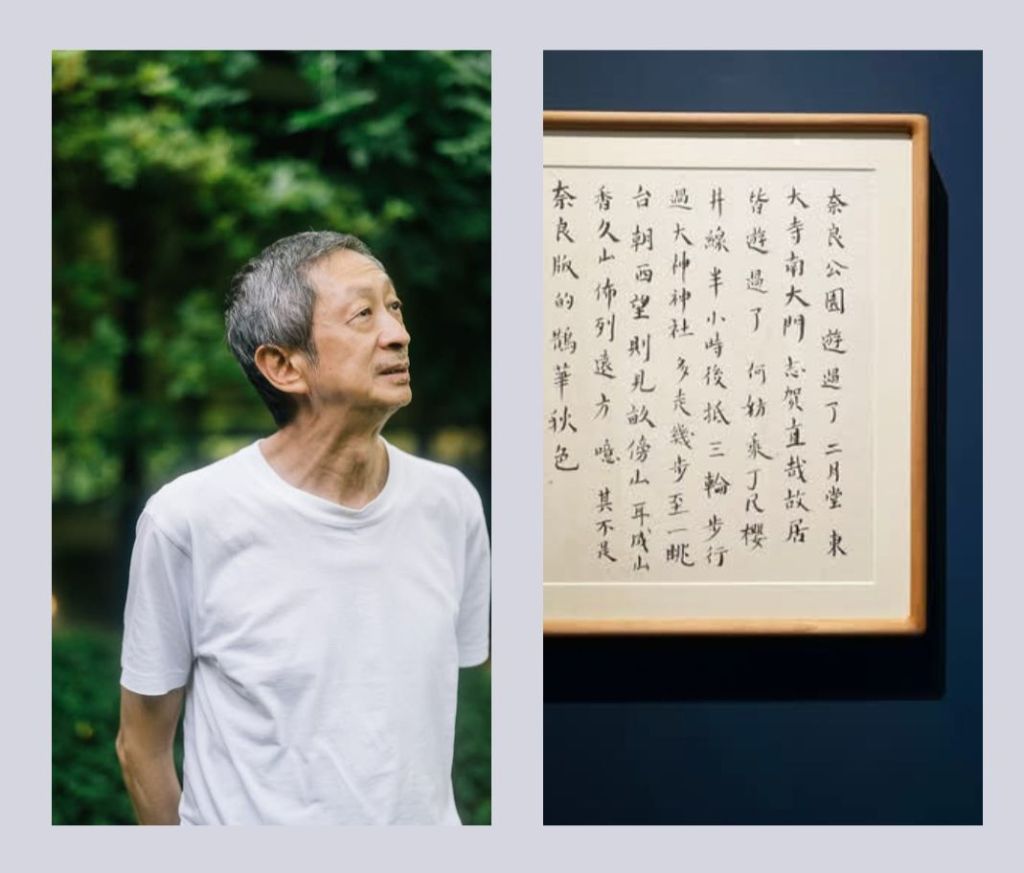 奈良公園遊過了二月堂 東
大寺南大門 志賀直哉故居
皆遊過了 何妨乘JR櫻
井線半小時後抵三輪 步行
過大神神社 多走幾步至一眺
台 朝西望則見畝傍山 耳成山
香久山佈列遠方 噫 其不是
奈良版的鵲華秋色